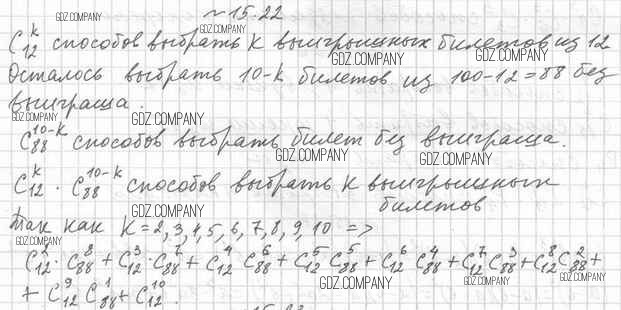 №15.22
C₁₂ᵏ способов выбрать k выигрышных билетов из 12
Осталось выбрать 10-k билетов из 100-12=88 без
выиграша.
C₈₈¹⁰⁻ᵏ способов выбрать билет без выиграша.
C₁₂ᵏ · C₈₈¹⁰⁻ᵏ способов выбрать k выигрышных
билетов
Так как k=2,3,4,5,6,7,8,9,10 =>
C₁₂²·C₈₈⁸+C₁₂³·C₈₈⁷+C₁₂⁴C₈₈⁶+C₁₂⁵C₈₈⁵+C₁₂⁶C₈₈⁴+C₁₂⁷C₈₈³+C₁₂⁸C₈₈²+
+C₁₂⁹C₈₈¹+C₁₂¹⁰.
GDZ.COMPANY
GDZ.COMPANY
GDZ.COMPANY
GDZ.COMPANY
GDZ.COMPANY
GDZ.COMPANY
GDZ.COMPANY
GDZ.COMPANY
GDZ.COMPANY
GDZ.COMPANY
GDZ.COMPANY
GDZ.COMPANY
GDZ.COMPANY